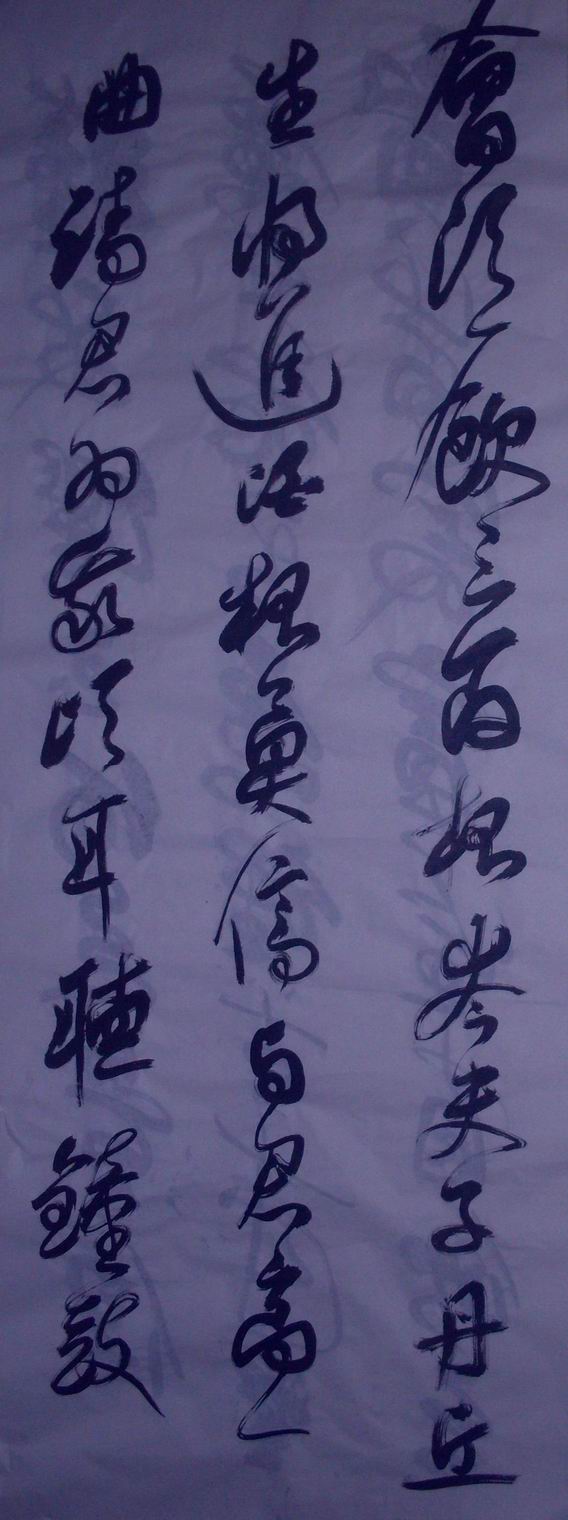 會須一飲三百杯岑夫子丹丘
生將進酒杯莫停與君歌一
曲請君為我傾耳聽鐘鼓